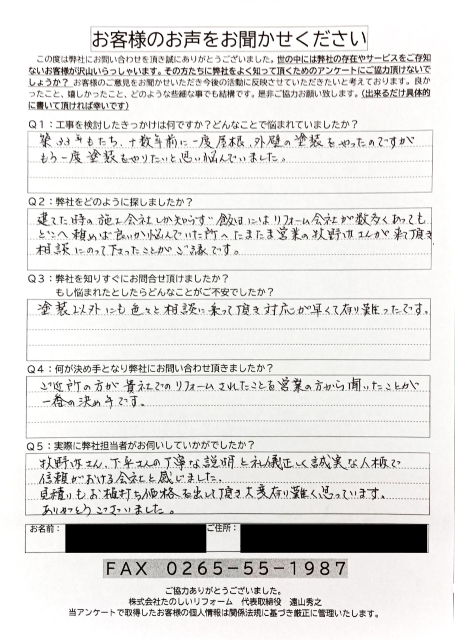 お客様のお声をお聞かせください
この度は弊社にお問い合わせを頂き誠にありがとうございました。世の中には弊社の存在やサービスをご存知
ないお客様が沢山いらっしゃいます。その方たちに弊社をよく知って頂くためのアンケートにご協力頂けないで
しょうか？ お客様のご意見をお聞かせいただき今後の活動に反映させていただきたいと考えております。良か
ったこと、嬉しかったこと、どのような些細な事でも結構です。是非ご協力お願い致します。（出来るだけ具体的
に書いて頂ければ幸いです）
Q1：工事を検討したきっかけは何ですか？どんなことで悩まれていましたか？
築33年もたち、十数年前に一度屋根、外壁の塗装をやったのですが
もう一度塗装をやりたいと思い悩んでいました。
Q2：弊社をどのように探しましたか？
建てた時の施工会社しか知らず飯田にはリフォーム会社が数多くあっても
どこへ頼めば良いか悩んでいた所へたまたま営業の牧野内さんが来て頂き
相談にのって下さったことがご縁です。
Q3：弊社を知りすぐにお問合せ頂けましたか？
もし悩まれたとしたらどんなことがご不安でしたか？
塗装以外にも色々と相談に乗って頂き対応が早くて有り難ったです。
Q4：何が決め手となり弊社にお問い合わせ頂きましたか？
ご近所の方が貴社でのリフォームされたことを営業の方から聞いたことが
一番の決め手です。
Q5：実際に弊社担当者がお伺いしていかがでしたか？
牧野内さん、下平さんの丁寧な説明と礼儀正しく誠実な人柄で
信頼がおける会社と感じました。
見積りもお値打ち価格を出して頂き大変有り難く思っています。
ありがとうございました。
お名前： ご住所：
FAX 0265-55-1987
ご協力ありがとうございました。
株式会社たのしいリフォーム 代表取締役 遠山秀之
当アンケートで取得したお客様の個人情報は関係法規に基づき厳正に管理いたします。